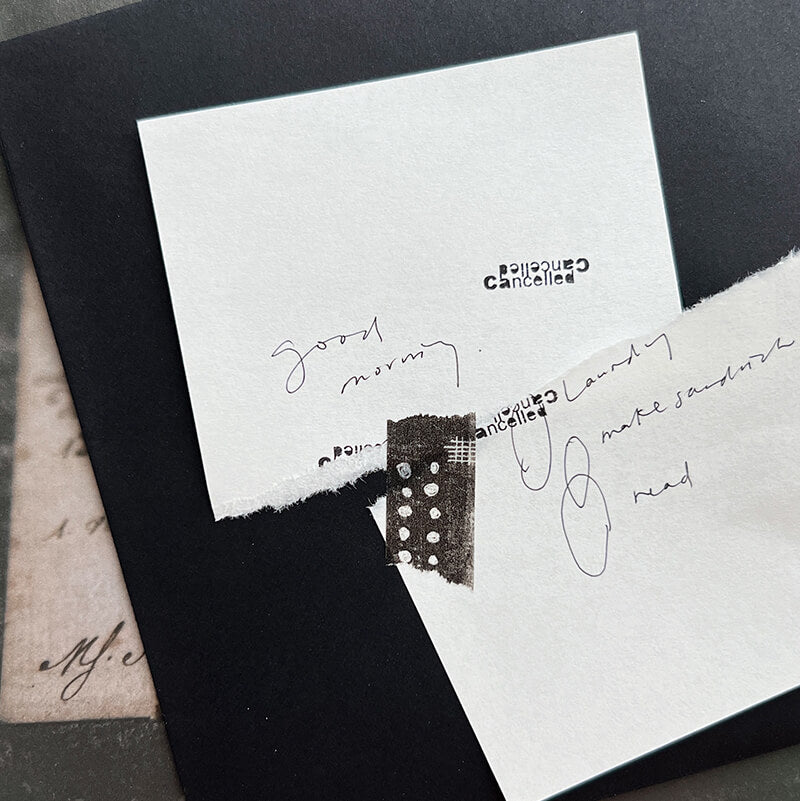 Cancelled
Cancelled
good
morning.
Cancelled
Cancelled
ancelled
laundry
make sandwich
read